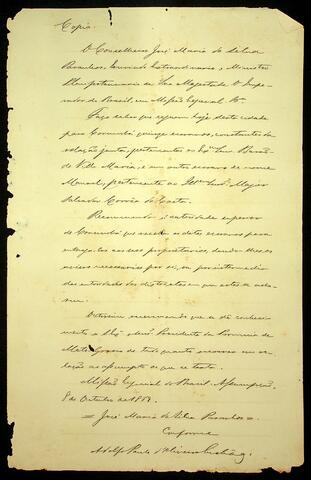 Copia
O Conselheiro José Maria da Silva
Paranhos, Enviado Extraordinario e Ministro
Plenipotenciario de Sua Magestade o Impe-
rador do Brasil, em Missão Especial &ª.
Faço saber que seguem hoje desta cidade
para Corumbá quinze escravos, constantes da
relação junta, pertencentes ao Exmo. Snr. Barão
de Villa Maria, e um outro escravo de nome
Manoel, pertencente ao Illmo. Snr. Major
Salvador Corrêa da Costa.
Recommendo á autoridade superior
de Corumbá que receba os ditos escravos para
entregal-os aos seus proprietarios, dando-lhes os
avisos necessarios por si, ou por intermedio
das autoridades dos districtos em que estes
Determino
mento a S. Exa. o Snr. Presidente da Provincia de
Mato Grosso de tudo quanto occorrer em re-
lação ao assumpto de que se trata.
Missão Especial do Brasil. Assumpção,
8 de Outubro de
= José Maria da Silva Paranhos =
Conforme
Adolpho Paulo d'Oliveira Lisboa